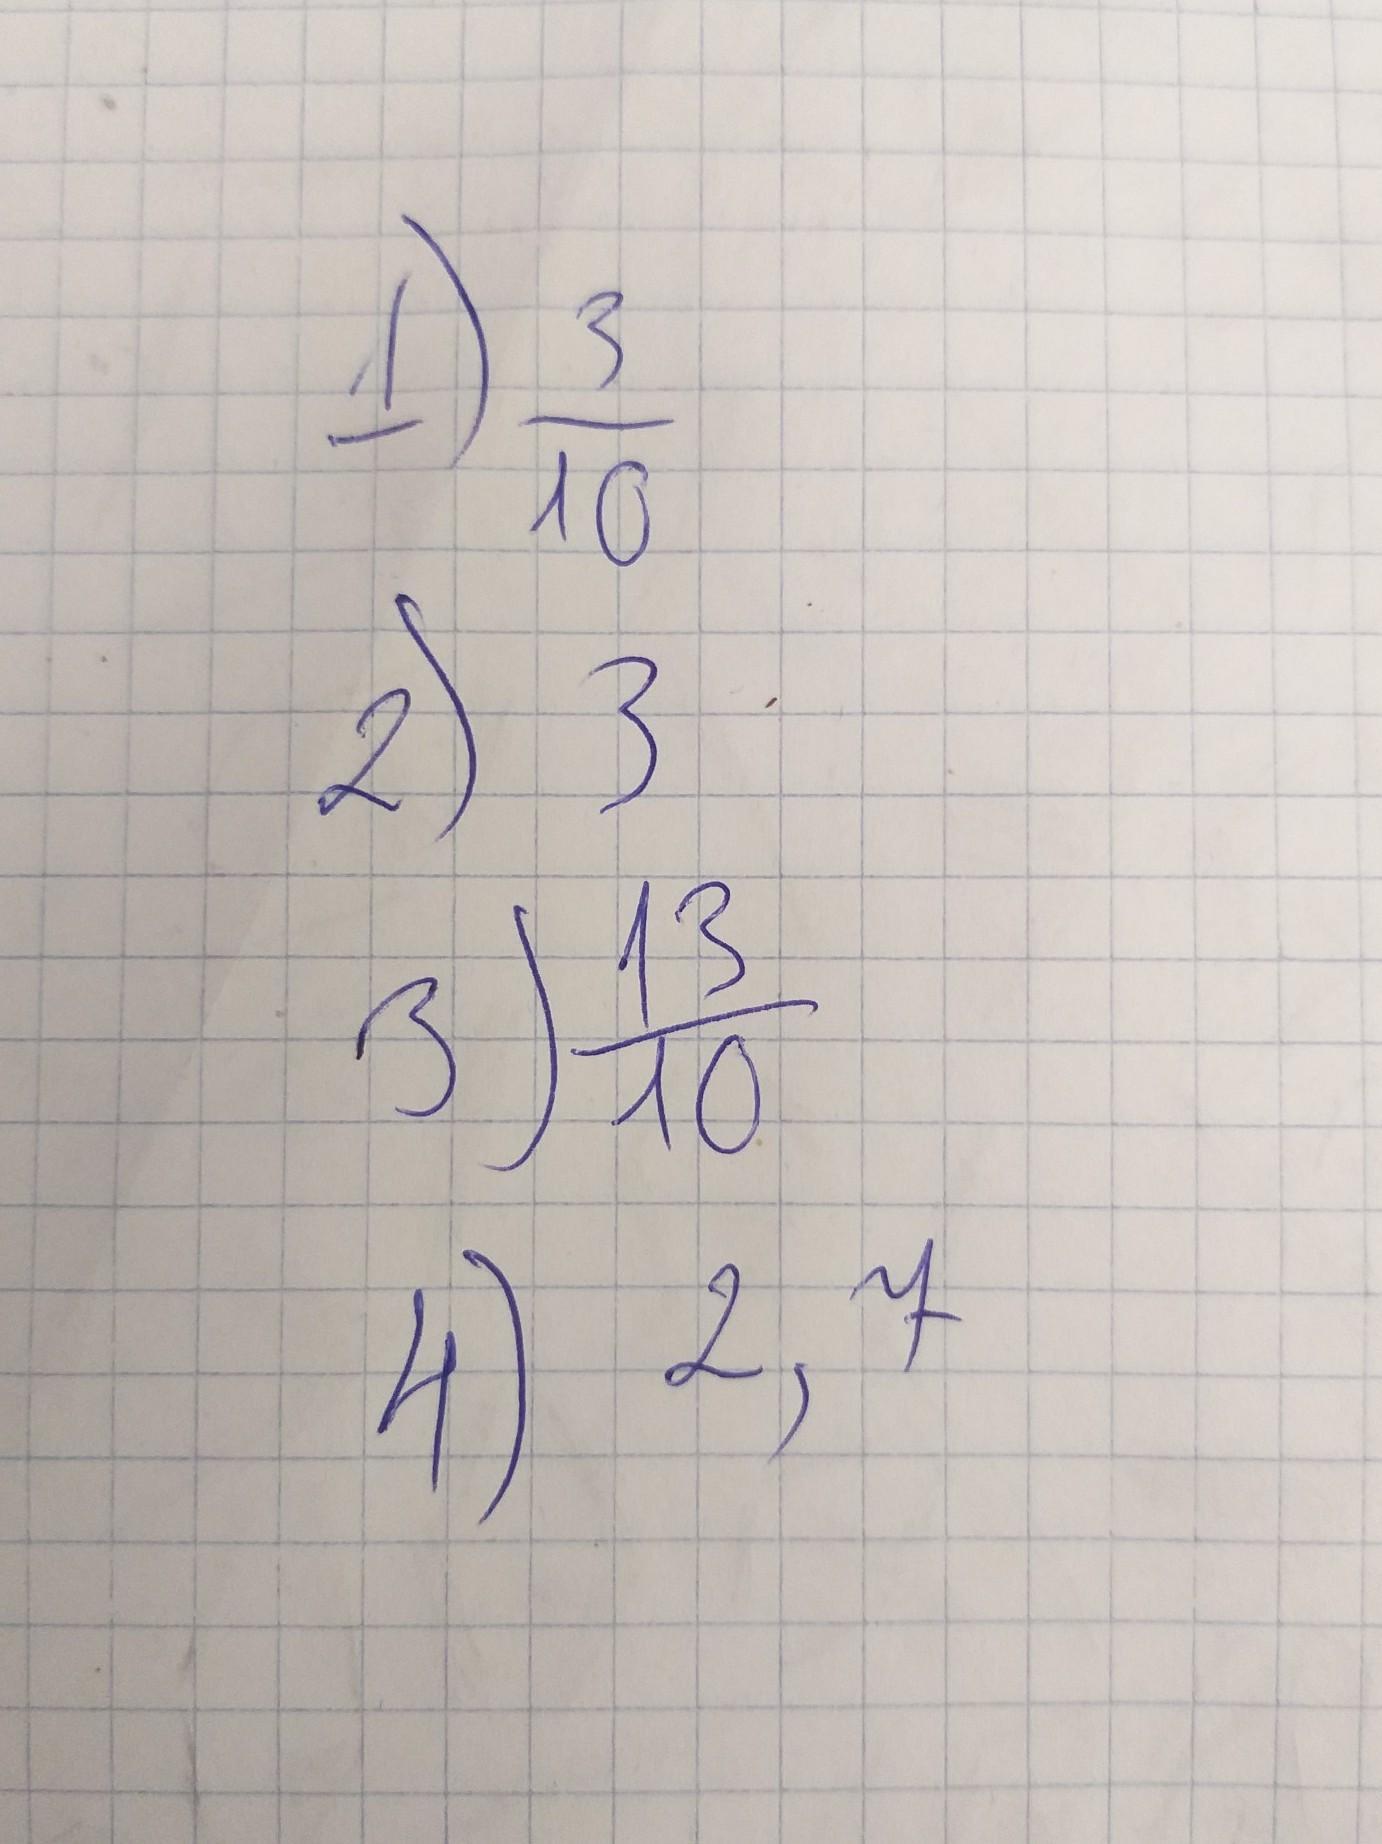 1) 3/10
2) 3
3) 13/10
4) 2,7